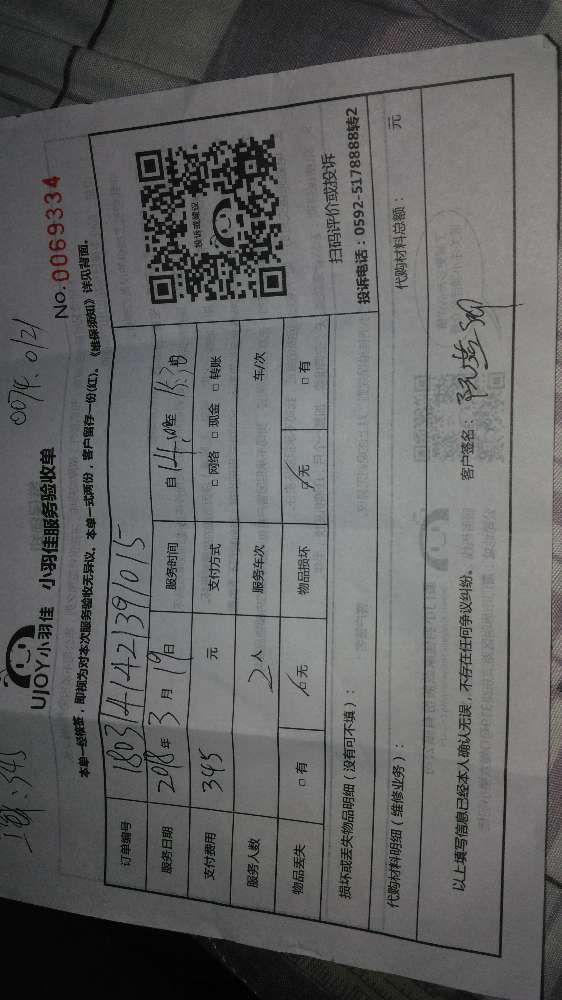 工食:345
0074.0121
UJOY小羽佳 小羽佳服务验收单
No.0069334
本单一经签签,即视为对本次服务验收无异议。本单一式两份,客户留存一份(红)。《维保须知》详见背面。
订单编号 1803141421391015
服务日期 2018年3月19日 服务时间 自14:00至15:30
支付费用 345元 支付方式 □网络 □现金 □转账
服务人数 2人 服务车次 车/次
物品丢失 □有 □无 物品损坏 □无 □有
投诉或建议
扫码评价或投诉
投诉电话:0592-5178888转2
损坏或丢失物品明细(没有可不填):
代购材料明细(维修业务): 代购材料总额: 元
以上填写信息已经本人确认无误,不存在任何争议纠纷。 客户签名: